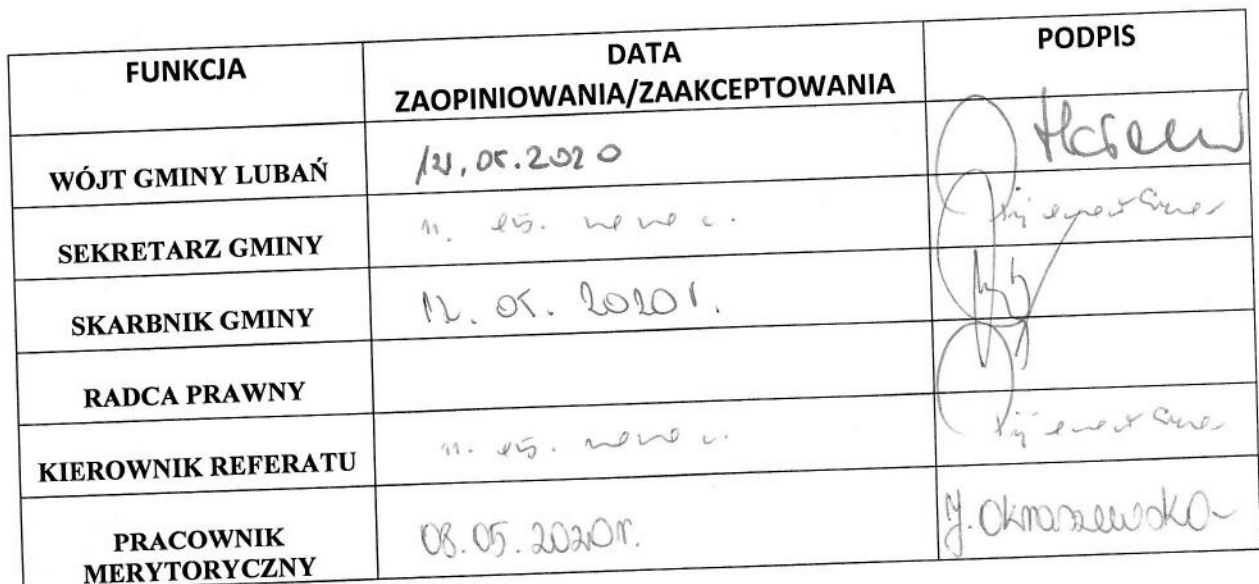 FUNKCJA
DATA
ZAOPINIOWANIA/ZAAKCEPTOWANIA
PODPIS
WÓJT GMINY LUBAŃ
05.2020
SEKRETARZ GMINY
11. 05. 2020 r.
SKARBNIK GMINY
12. 05. 2020 r.
RADCA PRAWNY
KIEROWNIK REFERATU
11. 05. 2020 r.
PRACOWNIK
MERYTORYCZNY
08.05.2020r.
J. Okraszewska